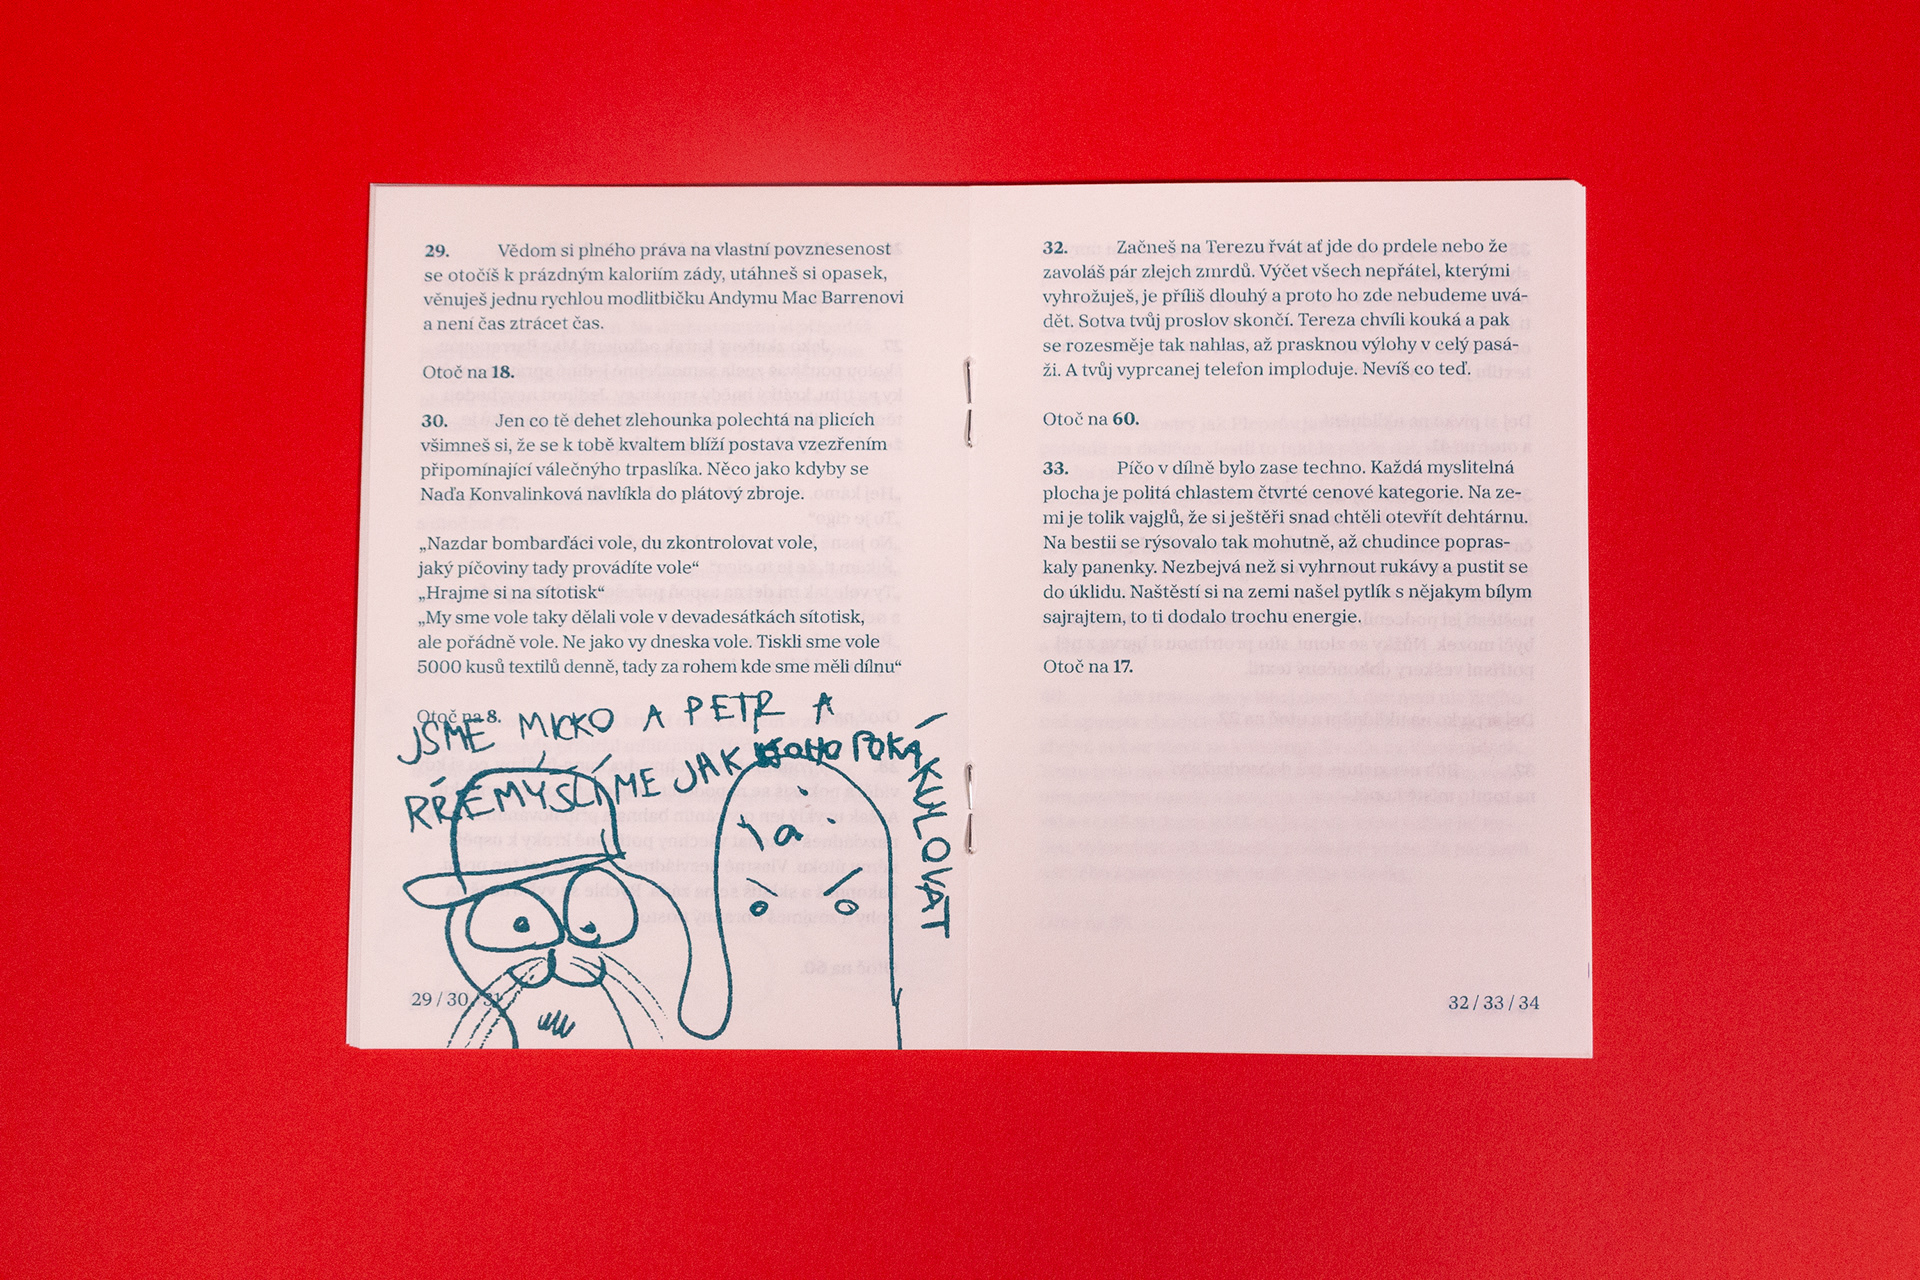 29. Vědom si plného práva na vlastní povznesenost
se otočíš k prázdným kaloriím zády, utáhneš si opasek,
věnuješ jednu rychlou modlitbičku Andymu Mac Barrenovi
a není čas ztrácet čas.
Otoč na 18.
30. Jen co tě dehet zlehounka polechtá na plicích
všimneš si, že se k tobě kvaltem blíží postava vzezřením
připomínající válečnýho trpaslíka. Něco jako kdyby se
Naďa Konvalinková navlíkla do plátový zbroje.
„Nazdar bombarďáci vole, du zkontrolovat vole,
jaký píčoviny tady provádíte vole“
„Hrajme si na sítotisk“
„My sme vole taky dělali vole v devadesátkách sítotisk,
ale pořádně vole. Ne jako vy dneska vole. Tiskli sme vole
5000 kusů textilů denně, tady za rohem kde sme měli dílnu“
Otoč na 8.
JSME MICKO A PETR A
PŘEMÝŠLÍME JAK KOHO POKÁKULOVAT
29 / 30 / 31
32. Začneš na Terezu řvát ať jde do prdele nebo že
zavoláš pár zlejch zmrdů. Výčet všech nepřátel, kterými
vyhrožuješ, je příliš dlouhý a proto ho zde nebudeme uvá-
dět. Sotva tvůj proslov skončí. Tereza chvíli kouká a pak
se rozesměje tak nahlas, až prasknou výlohy v celý pasá-
ži. A tvůj vyprcanej telefon imploduje. Nevíš co teď.
Otoč na 60.
33. Píčo v dílně bylo zase techno. Každá myslitelná
plocha je politá chlastem čtvrté cenové kategorie. Na ze-
mi je tolik vajglů, že si ještěři snad chtěli otevřít dehtárnu.
Na bestii se rýsovalo tak mohutně, až chudince popras-
kaly panenky. Nezbejvá než si vyhrnout rukávy a pustit se
do úklidu. Naštěstí si na zemi našel pytlík s nějakym bílym
sajrajtem, to ti dodalo trochu energie.
Otoč na 17.
32 / 33 / 34